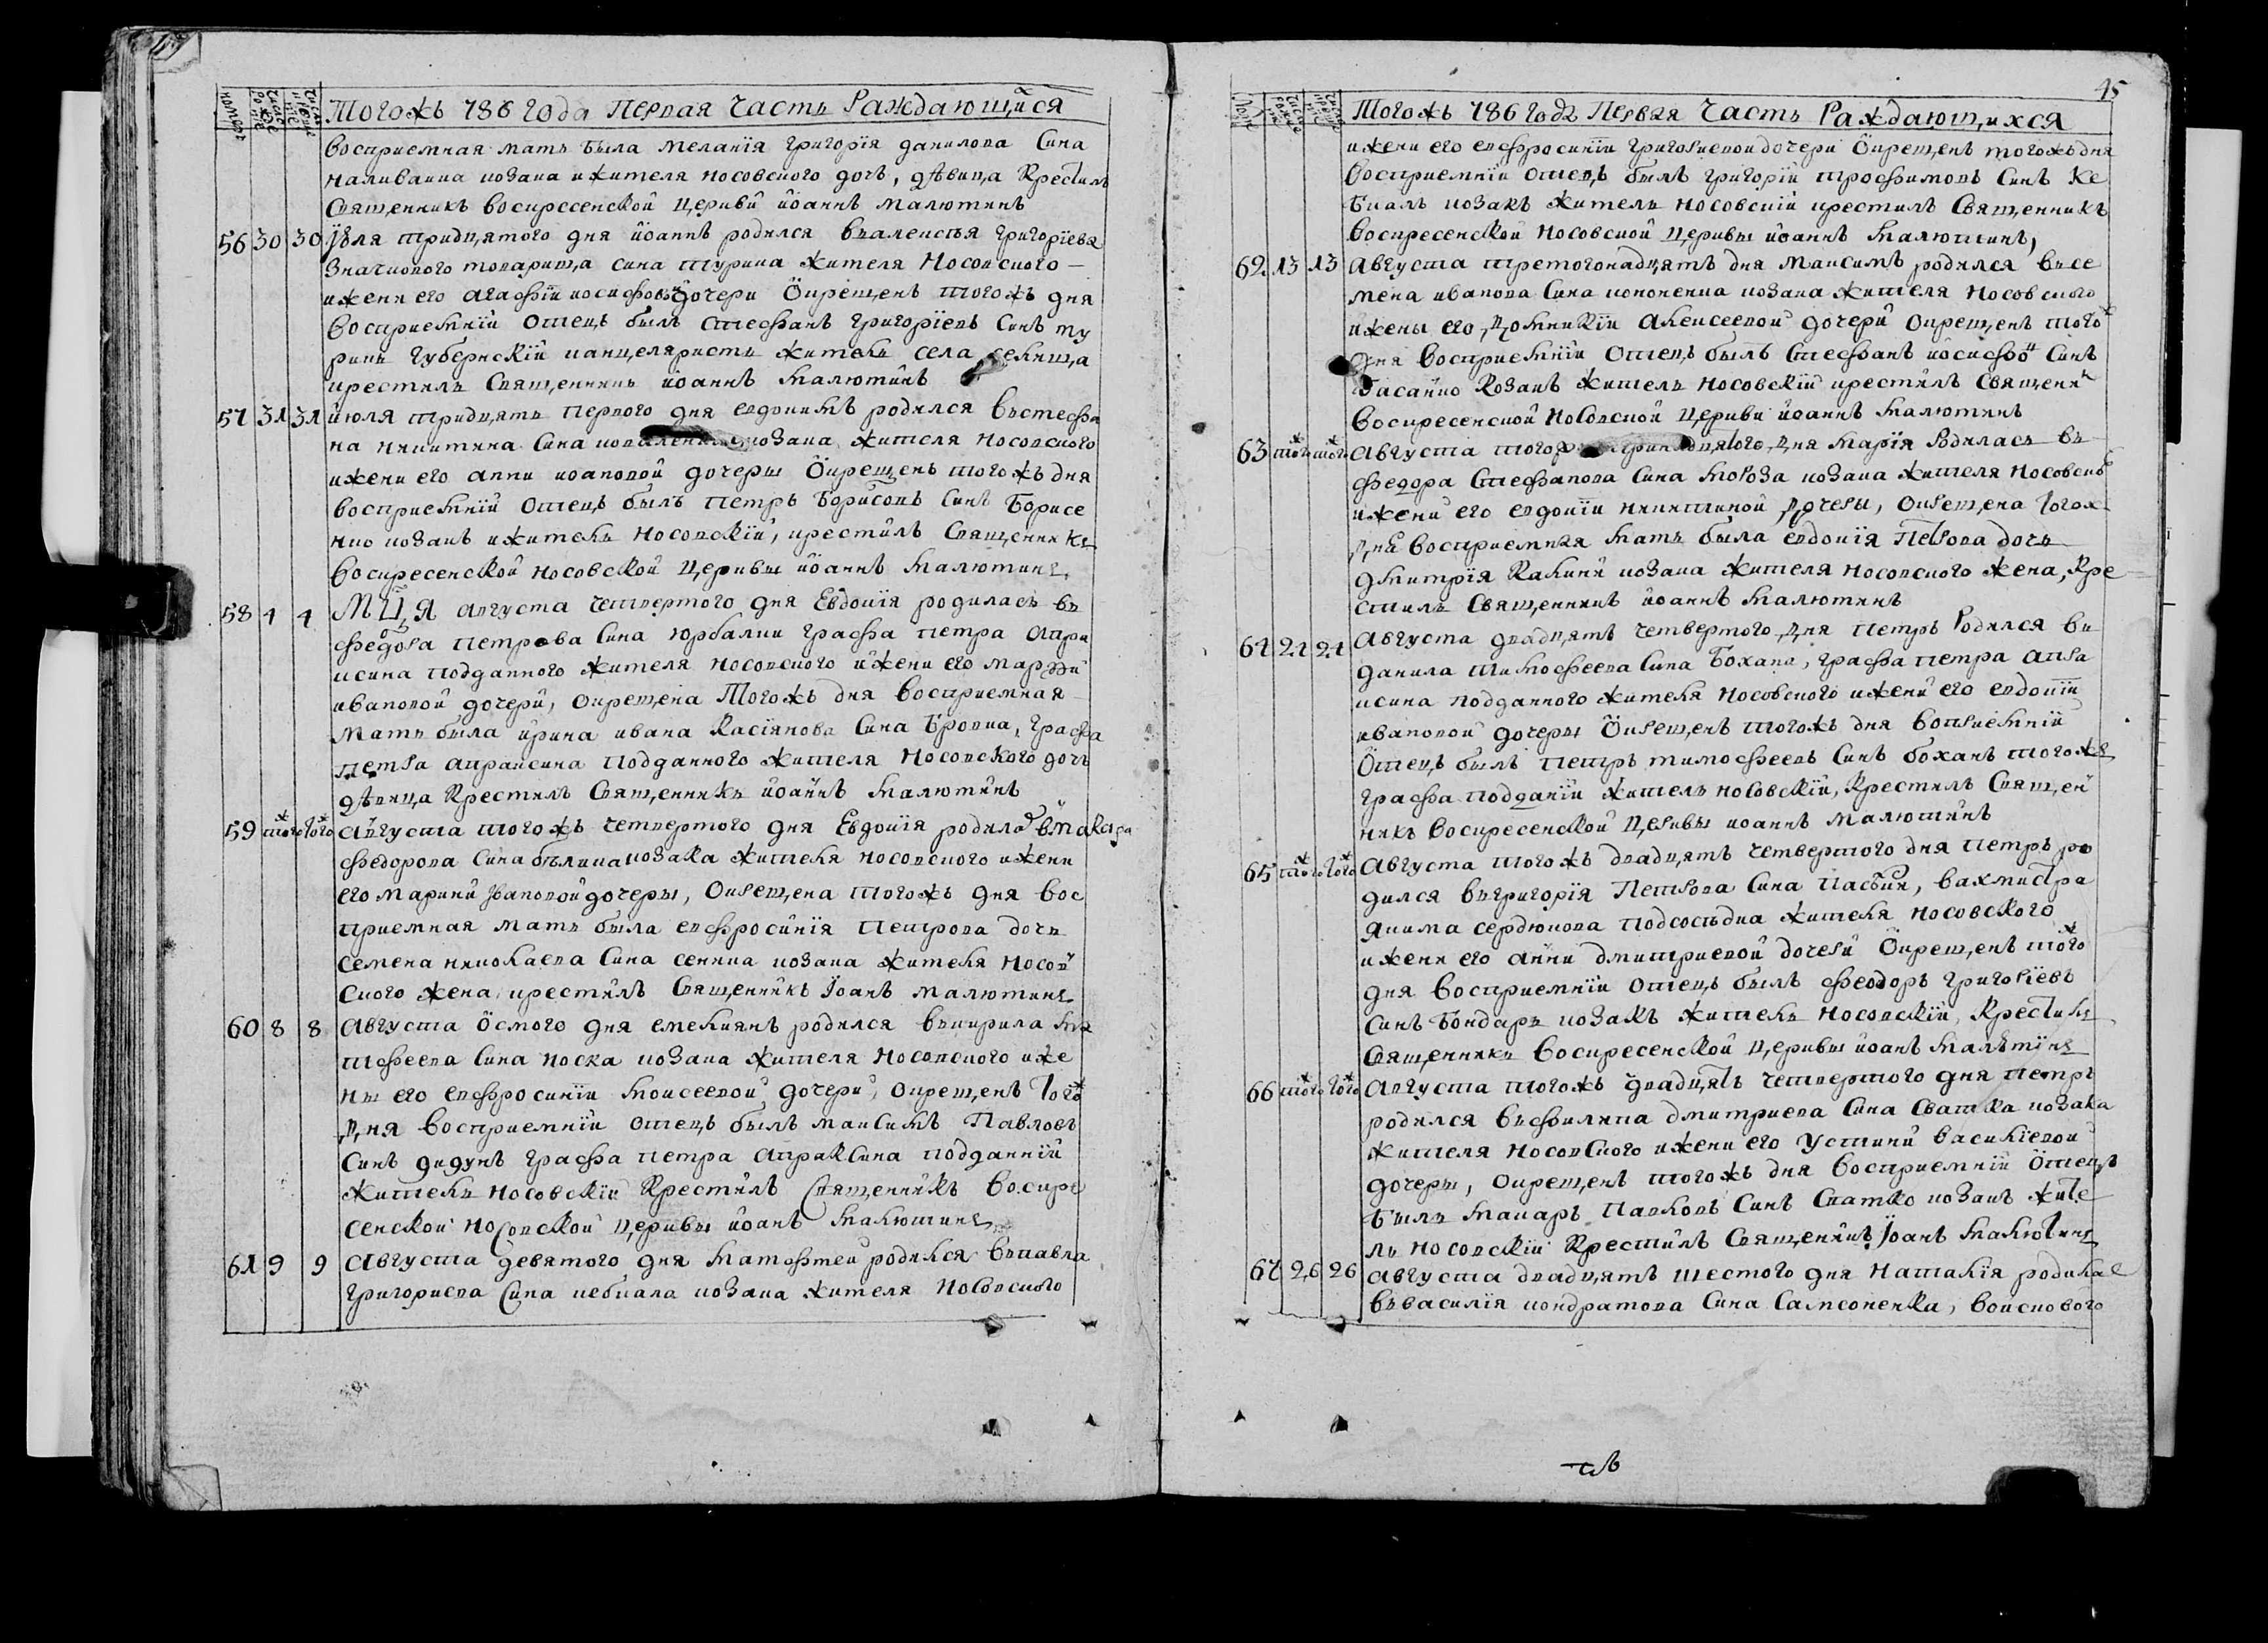 номеръ
Тогожъ 786 года Первая Часть Раждающийся
восприемная мать была меланія григорія данилова сина
наливаика козака жителя носовского дочь, дѣвица крестилъ
Священникъ воскресенской церкви иоаннъ малютинъ
56 30 30 іуля тридцятого дня иоаннъ родился валексѣя григоріева
значкового товарища сина турика жителя носовского —
ижени его агафіи иосифовой дочери окрещенъ тогожъ дня
восприемній отецъ былъ стефанъ григоріевъ синъ ту
рикъ губернскій канцеляристъ житель села селища
крестилъ Священникъ иоаннъ малютинъ
57 31 31 июля тридцять первого дня евдокимъ родился встефа
на никитина сина козака жителя носовского
ижени его анни ивановой дочеры окрещенъ тогожъ дня
восприемній отецъ былъ петръ борисовъ синъ борисе
нко козакъ ижитель носовскій, крестилъ Священникъ
воскресенской носовской церквы иоаннъ малютинъ
58 4 4 мця августа четвертого дня Евдокія родилась въ
федора петрова сина юрбалки графа петра апра
ксина подданного жителя носовского ижени его марфи
ивановой дочери, окрещена тогожъ дня восприемная
мать была ирина ивана касіянова сина бровка, графа
петра апраксина подданного жителя носовского дочь
дѣвица крестилъ Священникъ иоаннъ малютинъ
59 того ж того ж августа тогожъ четвертого дня Евдокія родилас вмакара
федорова сина бѣлика козака жителя носовского ижени
его марини ивановой дочеры, окрещена тогожъ дня вос
приемная мать была ефросинія петрова дочь
семена николаева сина сеника козака жителя носов
ского жена, крестилъ Священникъ іоанъ малютинъ
60 8 8 августа осмого дня емелиянъ родился вкирила ма
тфеева сина носка козака жителя носовского иже
ны его ефросиніи моисеевой дочери, окрещенъ того ж
дня восприемній отецъ былъ максимъ павловъ
синъ дидукъ графа петра апраксина подданній
житель носовскій крестилъ Священникъ воскре
сенской носовской церквы иоанъ малютинъ
61 9 9 августа девятого дня матфтей родился впавла
григориева сина кебкала козака жителя носовского
45
Тогожъ 786 года Первая Часть Раждающихся
ижени его ефросиніи григориевой дочери окрещенъ тогожъ дня
восприемній отецъ былъ григорій трофимовъ синъ ке
бкалъ козакъ житель носовскій крестилъ Священникъ
воскресенской носовской церквы иоаннъ малютинъ,
62 13 13 августа третогонадцять дня максимъ родился всe
мена иванова сина кононенка козака жителя носовского
ижены его, домникіи алексеевой дочери окрещенъ того ж
дня восприемній отецъ былъ стефанъ иосифо синъ
басанко козакъ житель носовскій крестилъ священик
воскресенской носовской церкви иоаннъ малютинъ
63 того ж того ж августа дня марія родилась въ
федора стефанова сина мороза козака жителя носовског
ижени его евдокіи никитиной дочеры, окрещена тогож
дня восприемная мать была евдокія петрова дочь
дмитрія калини козака жителя носовского жена, кре
стилъ Священникъ иоаннъ малютинъ
64 24 24 августа двадцять четвертого дня петръ родился въ
данила тимофеева сина бохана, графа петра апра
ксина подданного жителя носовского ижени его евдокіи
ивановой дочеры окрещенъ тогожъ дня восприемній
отецъ былъ петръ тимофеевъ синъ боханъ того ж
графа подданій житель носовскій, крестилъ Священ
никъ воскресенской церквы иоаннъ малютинъ
65 того ж того ж августа тогожъ двадцять четвертого дня петръ ро
дился вгригорія петрова сина вахмистра
якима сердюкова подсосѣдка жителя носовского
ижени его анни дмитриевой дочери окрещенъ того ж
дня восприемній отецъ былъ феодоръ григоріевъ
синъ бондаръ козакъ житель носовскій, крестилъ
Священникъ воскресенской церквы иоанъ малютинъ
66 того ж того ж августа тогожъ двадцять четвертого дня петръ
родился вфилипа дмитриева сина сватка козака
жителя носовского ижени его устини василіевой
дочеры, окрещенъ тогожъ дня восприемній отецъ
былъ макаръ павловъ синъ сватко козакъ жите
ль носовскій крестилъ Священикъ іоанъ малютинъ
67 26 26 августа двадцять шестого дня наталія родилас
ввасилія кондратова сина самсоненка, войскового